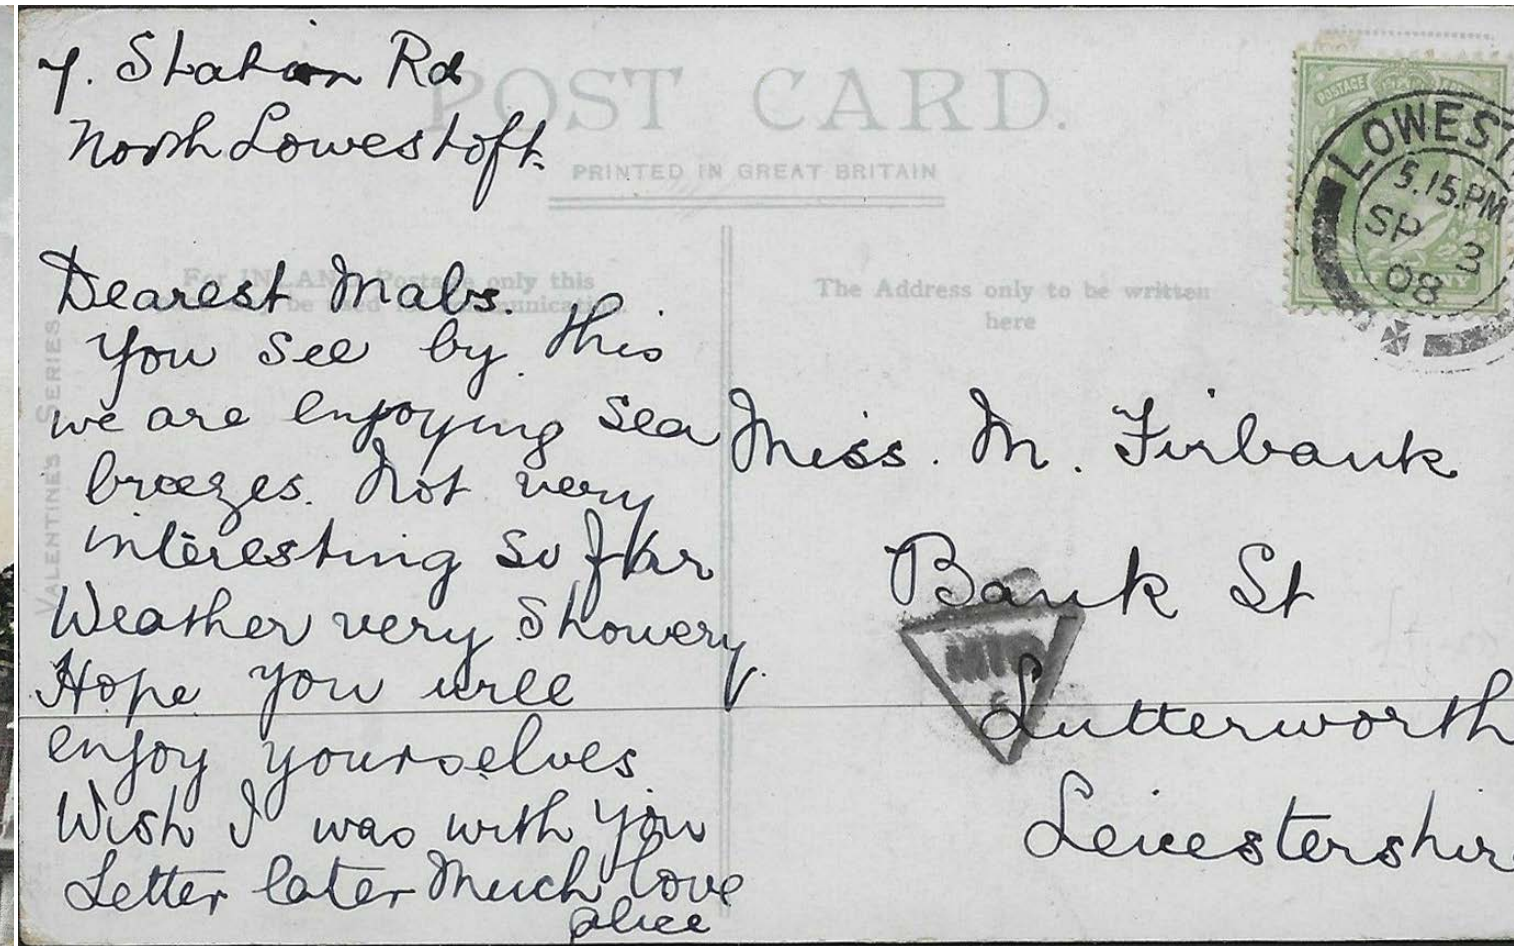 7. Station Rd
North Lowestoft.
POST CARD.
PRINTED IN GREAT BRITAIN
For INLAND Postage only this
space may be used for communication.
The Address only to be written
here
VALENTINE'S SERIES
Dearest Mabs.
You see by this
we are enjoying sea
breezes. Not very
interesting so far
Weather very Showery.
Hope you will
enjoy yourselves
Wish I was with you
Letter later Much love
Alice
POSTAGE
LOWEST
5.15.PM
SP 3
08
Miss. M. Firbank
Bank St
Lutterworth
Leicestershir